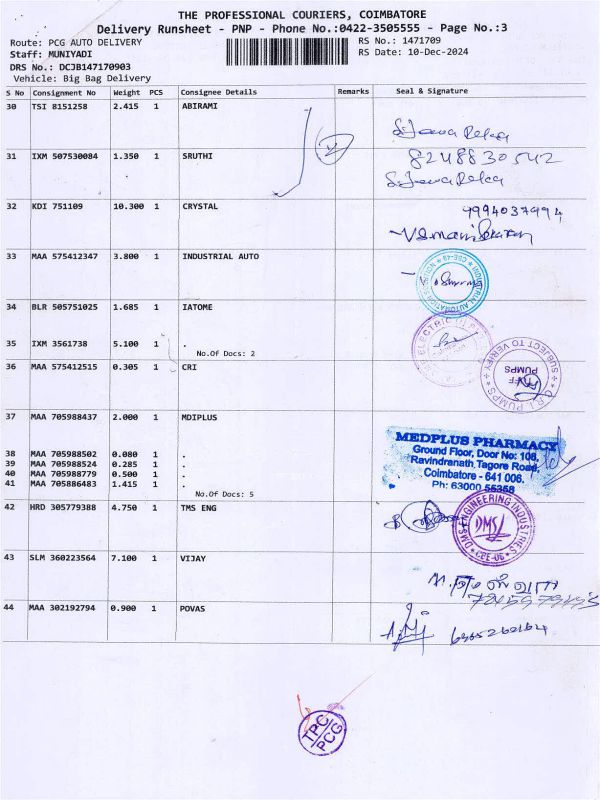 THE PROFESSIONAL COURIERS, COIMBATORE
Delivery Runsheet - PNP - Phone No.:0422-3505555 - Page No.:3
Route: PCG AUTO DELIVERY
RS No.: 1471709
Staff: MUNIYADI
RS Date: 10-Dec-2024
DRS No.: DCJB147170903
Vehicle: Big Bag Delivery
S No Consignment No Weight PCS Consignee Details Remarks Seal & Signature
30 TSI 8151258 2.415 1 ABIRAMI
31 IXM 507530084 1.350 1 SRUTHI
8248830542
32 KDI 751109 10.300 1 CRYSTAL
9994037994
33 MAA 575412347 3.800 1 INDUSTRIAL AUTO
34 BLR 505751025 1.685 1 IATOME
35 IXM 3561738 5.100 1 .
No.Of Docs: 2
SUBJECT TO VERIFY
C.R.I. PUMPS
36 MAA 575412515 0.305 1 CRI
37 MAA 705988437 2.000 1 MDIPLUS
MEDPLUS PHARMACY
Ground Floor, Door No: 108,
Ravindranath Tagore Road,
Coimbatore - 641 006.
Ph: 63000 55358
38 MAA 705988502 0.080 1 .
39 MAA 705988524 0.285 1 .
40 MAA 705988779 0.500 1 .
41 MAA 705886483 1.415 1 .
No.Of Docs: 5
42 HRD 305779388 4.750 1 TMS ENG
DMS ENGINEERING INDUSTRIES
DMS
CBE-06
43 SLM 360223564 7.100 1 VIJAY
44 MAA 302192794 0.900 1 POVAS
TPC
PCG